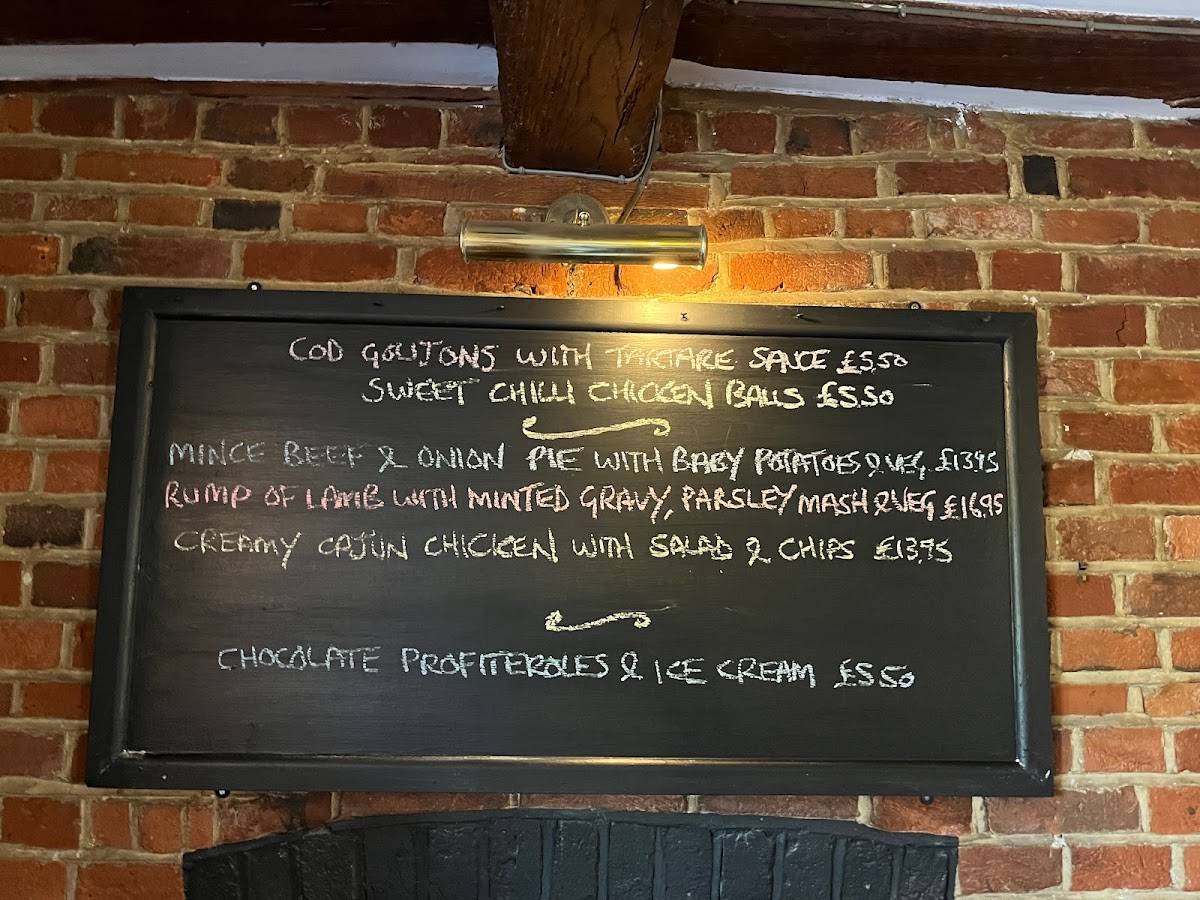 COD GOUJONS WITH TARTARE SAUCE £5.50
SWEET CHILLI CHICKEN BALLS £5.50
MINCE BEEF & ONION PIE WITH BABY POTATOES & VEG £13.95
RUMP OF LAMB WITH MINTED GRAVY, PARSLEY MASH & VEG £16.95
CREAMY CAJUN CHICKEN WITH SALAD & CHIPS £13.95
CHOCOLATE PROFITEROLES & ICE CREAM £5.50